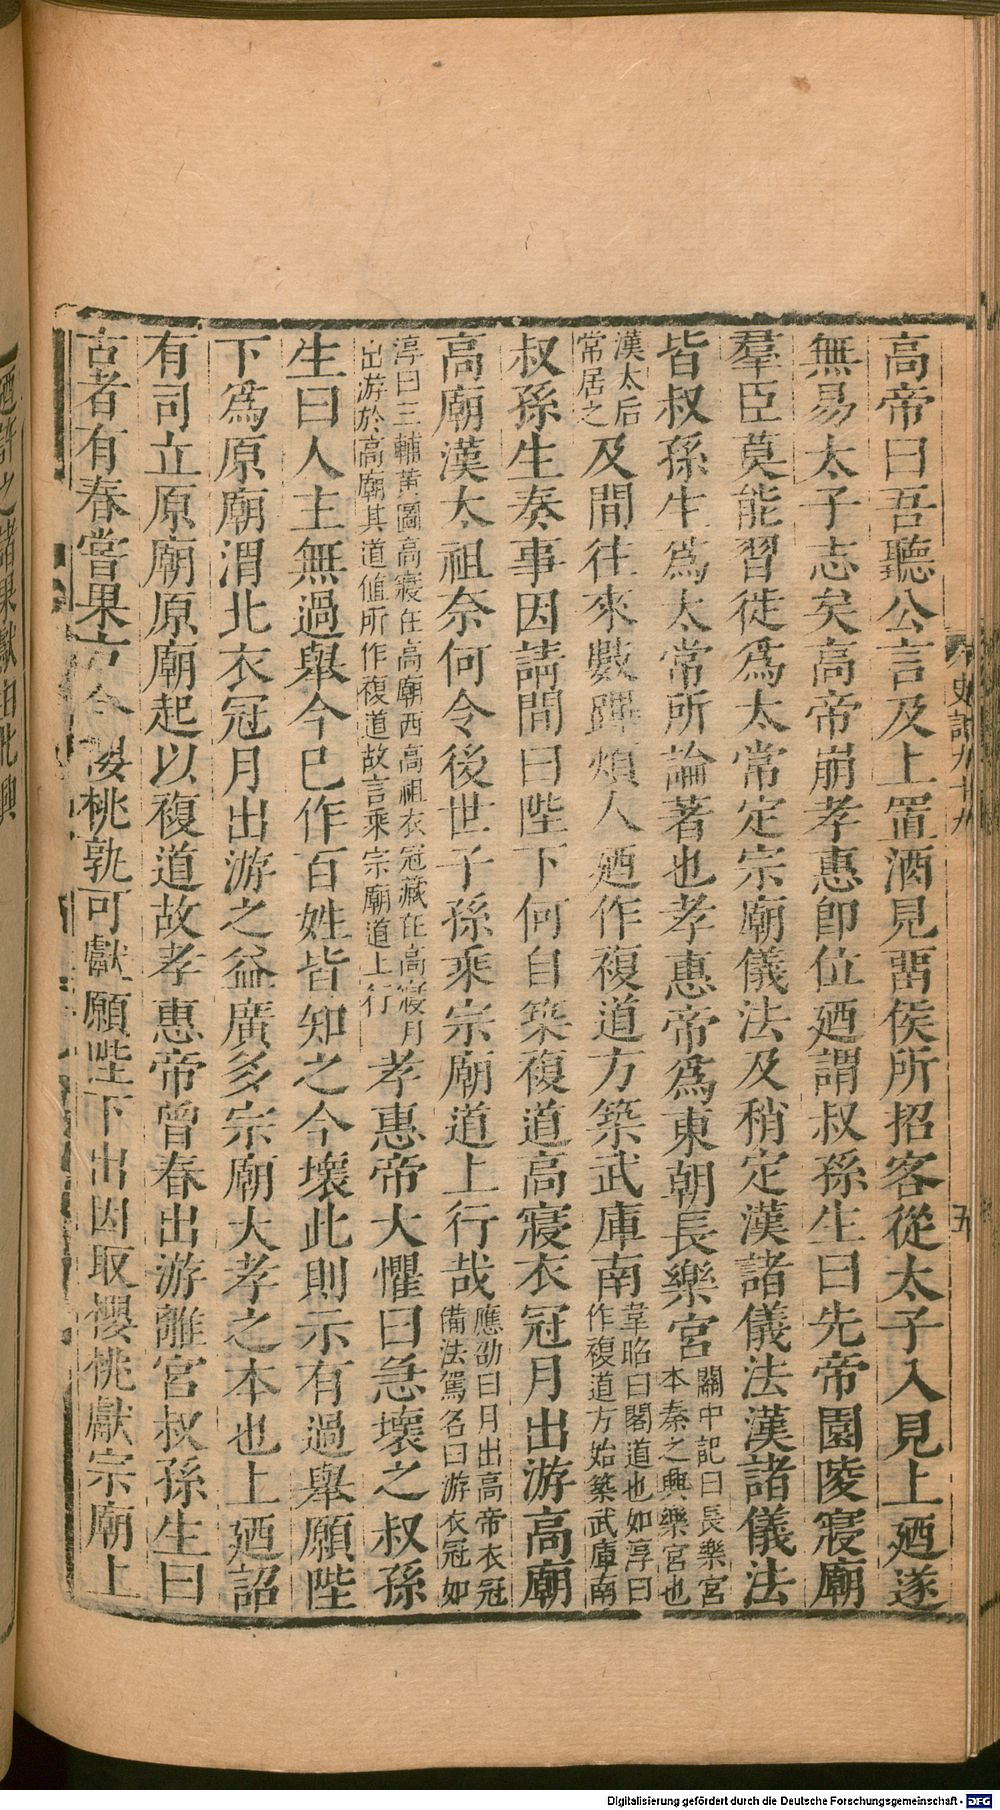 高帝曰吾聽公言及上置酒見畱侯所招客從太子入見上廼遂
無易太子志矣高帝崩孝惠卽位廼謂叔孫生曰先帝園陵寢廟
羣臣莫能習徙爲太常定宗廟儀法及稍定漢諸儀法漢諸儀法
皆叔孫生爲太常所論著也孝惠帝爲東朝長樂宮
關中記曰長樂宮
本秦之興樂宮也
漢太后
常居之
及間往來數蹕煩人廼作複道方築武庫南
韋昭曰閣道也如淳曰
作複道方始築武庫南
叔孫生奏事因請間曰陛下何自築複道高寢衣冠月出游高廟
高廟漢太祖奈何令後世子孫乘宗廟道上行哉
應劭曰月出高帝衣冠
備法駕名曰游衣冠如
淳曰三輔黃圖高寢在高廟西高祖衣冠藏在高寢月
出游於高廟其道値所作複道故言乘宗廟道上行
孝惠帝大懼曰急壞之叔孫
生曰人主無過舉今已作百姓皆知之今壞此則示有過舉願陛
下爲原廟渭北衣冠月出游之益廣多宗廟大孝之本也上廼詔
有司立原廟原廟起以複道故孝惠帝曾春出游離宮叔孫生曰
古者有春嘗果方今櫻桃孰可獻願陛下出因取櫻桃獻宗廟上
史記九十九
五
廼許之諸果獻由此興
Digitalisierung gefördert durch die Deutsche Forschungsgemeinschaft - DFG